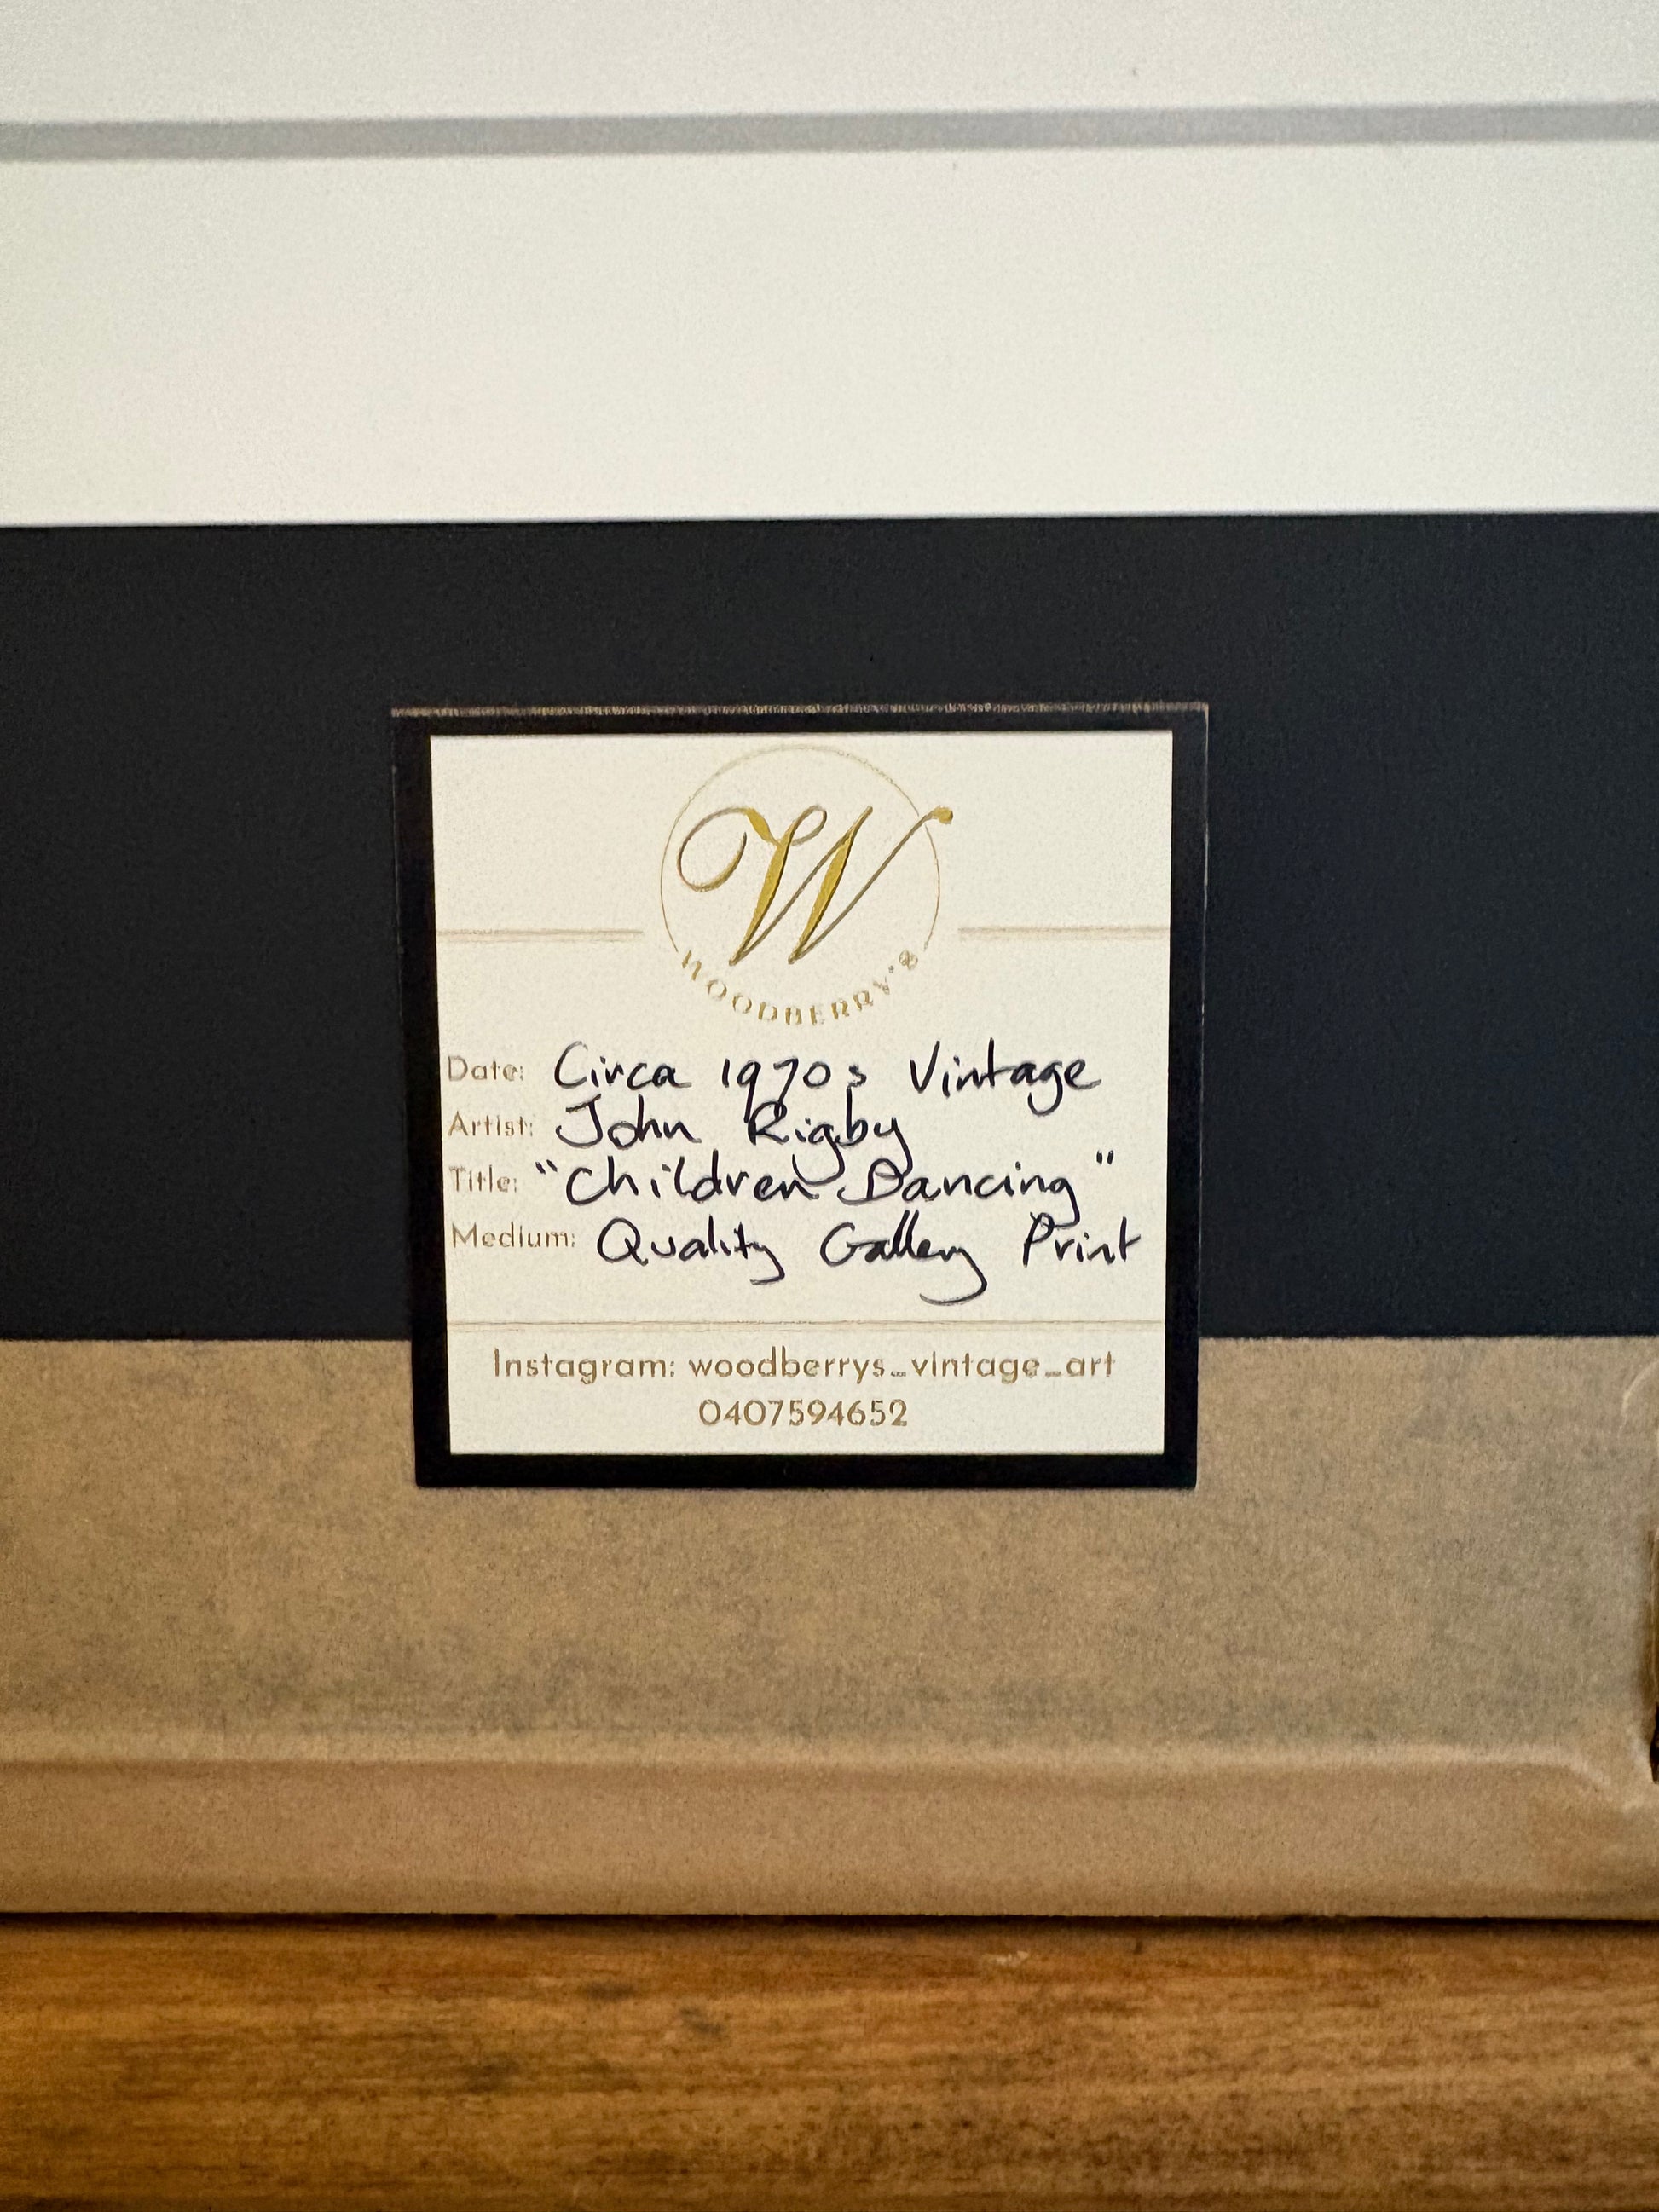 W
WOODBERRY'S
Date: Circa 1970s Vintage
Artist: John Rigby
Title: "Children Dancing"
Medium: Quality Gallery Print
Instagram: woodberrys_vintage_art
0407594652